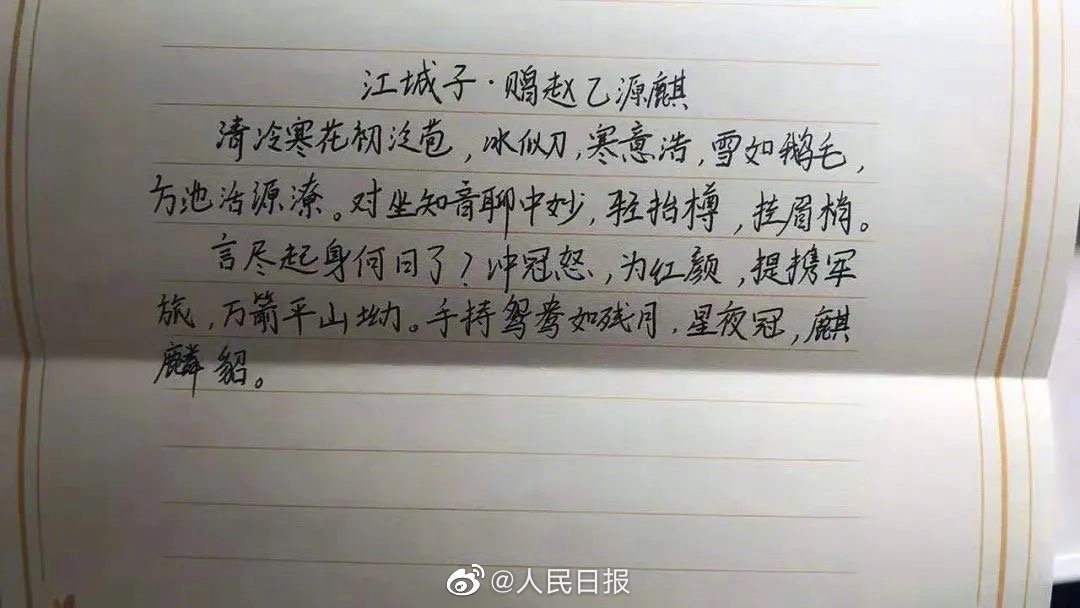 江城子·赠赵乙源麒
清冷寒花初泛苞，冰似刀，寒意浩，雪如鹅毛，
方池沽源潦。对坐知音聊中妙，轻抬樽，挂眉梢。
言尽起身何日了？冲冠怒，为红颜，提携军
旅，万箭平山坳。手持鸳鸯如残月，星夜冠，麒
麟貂。
@人民日报